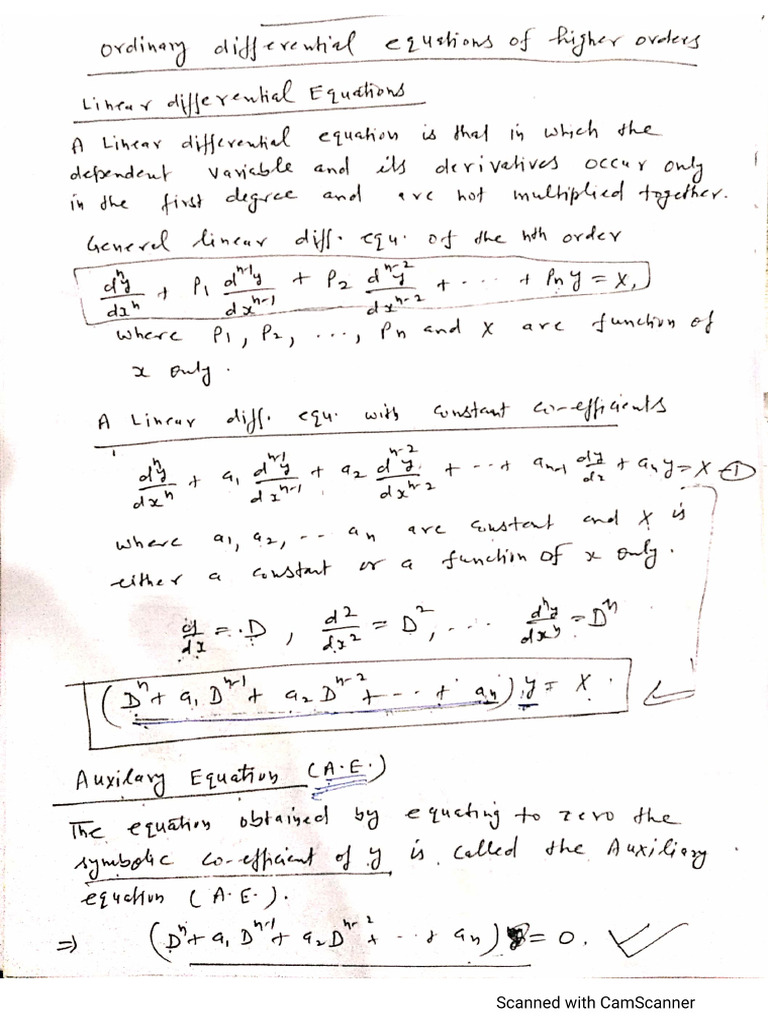 Ordinary differential equations of higher orders
Linear differential Equations
A Linear differential equation is that in which the
dependent variable and its derivatives occur only
in the first degree and are not multiplied together.
General linear diff. equ. of the nth order
dⁿy/dxⁿ + P₁ dⁿ⁻¹y/dxⁿ⁻¹ + P₂ dⁿ⁻²y/dxⁿ⁻² + ---- + Pₙ y = X,
where P₁, P₂, ..., Pₙ and X are function of
x only.
A Linear diff. equ. with constant co-efficients
dⁿy/dxⁿ + a₁ dⁿ⁻¹y/dxⁿ⁻¹ + a₂ dⁿ⁻²y/dxⁿ⁻² + --- + aₙ₋₁ dy/dx + aₙ y = X —①
where a₁, a₂, -- aₙ are constant and X is
either a constant or a function of x only.
d/dx = D, d²/dx² = D², --- dⁿy/dxⁿ = Dⁿ
(Dⁿ + a₁ Dⁿ⁻¹ + a₂ Dⁿ⁻² + --- + aₙ) y = X.
Auxilary Equation (A.E.)
The equation obtained by equating to zero the
symbolic co-efficient of y is called the Auxiliary
equation (A.E.).
⇒ (Dⁿ + a₁ Dⁿ⁻¹ + a₂ Dⁿ⁻² + --- + aₙ) = 0.
Scanned with CamScanner